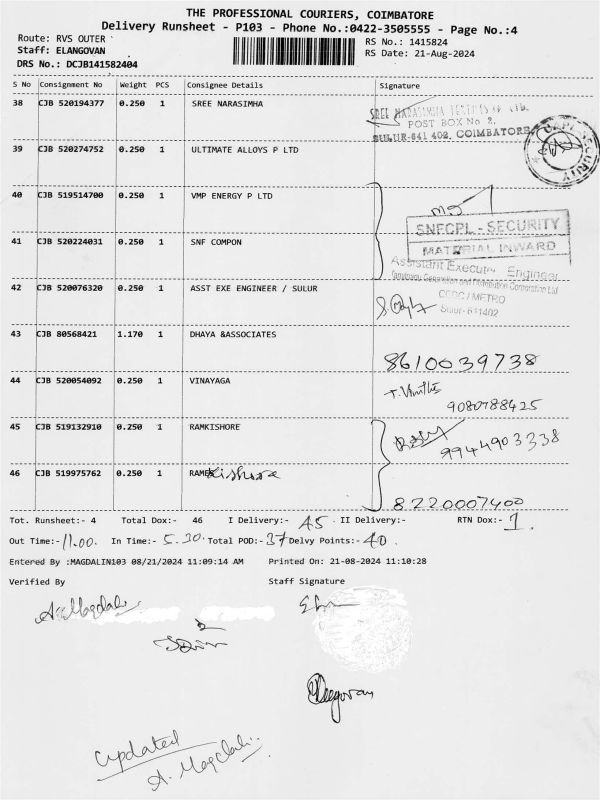 THE PROFESSIONAL COURIERS, COIMBATORE
Delivery Runsheet - P103 - Phone No.:0422-3505555 - Page No.:4
Route: RVS OUTER RS No.: 1415824
Staff: ELANGOVAN RS Date: 21-Aug-2024
DRS No.: DCJB141582404
S No Consignment No Weight PCS Consignee Details Signature
38 CJB 520194377 0.250 1 SREE NARASIMHA
SREE NARASIMHA TEXTILES
POST BOX No 2,
SULUR-641 402, COIMBATORE
SECURITY
39 CJB 520274752 0.250 1 ULTIMATE ALLOYS P LTD
40 CJB 519514700 0.250 1 VMP ENERGY P LTD
SNFCPL - SECURITY
41 CJB 520224031 0.250 1 SNF COMPON
MATERIAL INWARD
Assistant Executive Engineer
Generation and Distribution Corporation Ltd
42 CJB 520076320 0.250 1 ASST EXE ENGINEER / SULUR
/ METRO
Sulur- 641402
43 CJB 80568421 1.170 1 DHAYA &ASSOCIATES
8610039738
44 CJB 520054092 0.250 1 VINAYAGA
9080788425
45 CJB 519132910 0.250 1 RAMKISHORE
9944903338
46 CJB 519975762 0.250 1 RAMEKishore
8220007400
Tot. Runsheet:- 4 Total Dox:- 46 I Delivery:- 45 . II Delivery:- RTN Dox:- 1.
Out Time:- 11.00. In Time:- 5.30. Total POD:- 37 Delvy Points:- 40.
Entered By :MAGDALIN103 08/21/2024 11:09:14 AM Printed On: 21-08-2024 11:10:28
Verified By Staff Signature
A. Magdali
Updated
A. Magdali.